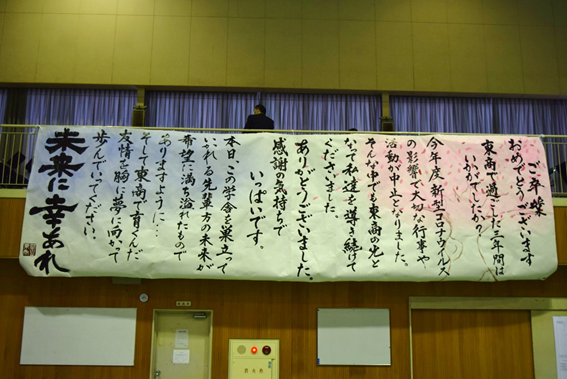 ご卒業
おめでとうございます
東商で過ごした三年間は
いかがでしたか？
今年度、新型コロナウイルス
の影響で大切な行事や
活動が中止となりました。
そんな中でも東商の光と
なって私達を導き続けて
くださいました。
ありがとうございました。
感謝の気持ちで
いっぱいです。
本日、この学舎を巣立って
いかれる先輩方の未来が
希望に満ち溢れたもので
ありますように…
そして東商で育くんだ
友情を胸に夢に向かって
歩んでいってください。
未来に幸あれ
消火栓